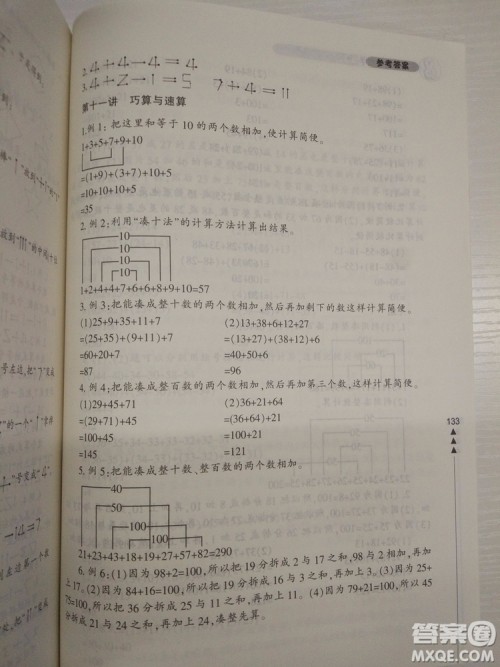 参考答案
2. 4+4-4=4
3. 4+2-1=5 7+4=11
第十一讲 巧算与速算
1. 例1：把这里和等于10的两个数相加，使计算简便。
1+3+5+7+9+10
=(1+9)+(3+7)+10+5
=10+10+10+5
=35
2. 例2：利用“凑十法”的计算方法计算出结果。
10
10
10
10
1+2+4+4+7+6+6+8+9+10=57
3. 例3：把能凑成整十数的两个数相加，然后再加剩下的数这样计算简便。
(1)25+9+35+11+7 (2)13+38+6+12+27
=(25+35)+(9+11)+7 =(13+27)+(38+12)+6
=60+20+7 =40+50+6
=87 =96
4. 例4：把能凑成整百数的两个数相加，然后再加第三个数，这样计算简便。
(1)29+45+71 (2)36+21+64
=(29+71)+45 =(36+64)+21
=100+45 =100+21
=145 =121
133
5. 例5：把能凑成整十数、整百数的两个数相加。
40
50
100
100
21+23+43+18+19+27+57+82=290
6. 例6：(1)因为98+2=100，所以把19分拆成2与17之和，98与2相加，再加
上17。(2)因为84+16=100，所以把19分拆成16与3之和，再加上3。(3)因为25+
75=100，所以把36分拆成25与11之和，再加上11。(4)因为79+21=100，所以把45
分拆成21与24之和，再加上24，凑整先算。
答案圈
MXQE.COM